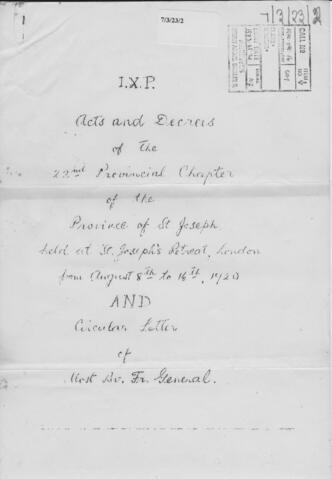 7/3/23/2
7/3/23/2
I.X.P.
Acts and Decrees
of the
22nd Provincial Chapter
of the
Province of St Joseph,
held at St. Joseph's Retreat, London
from August 8th to 16th, 1920
AND
Circular Letter
of
Most Rv. Fr. General.
CALL NO